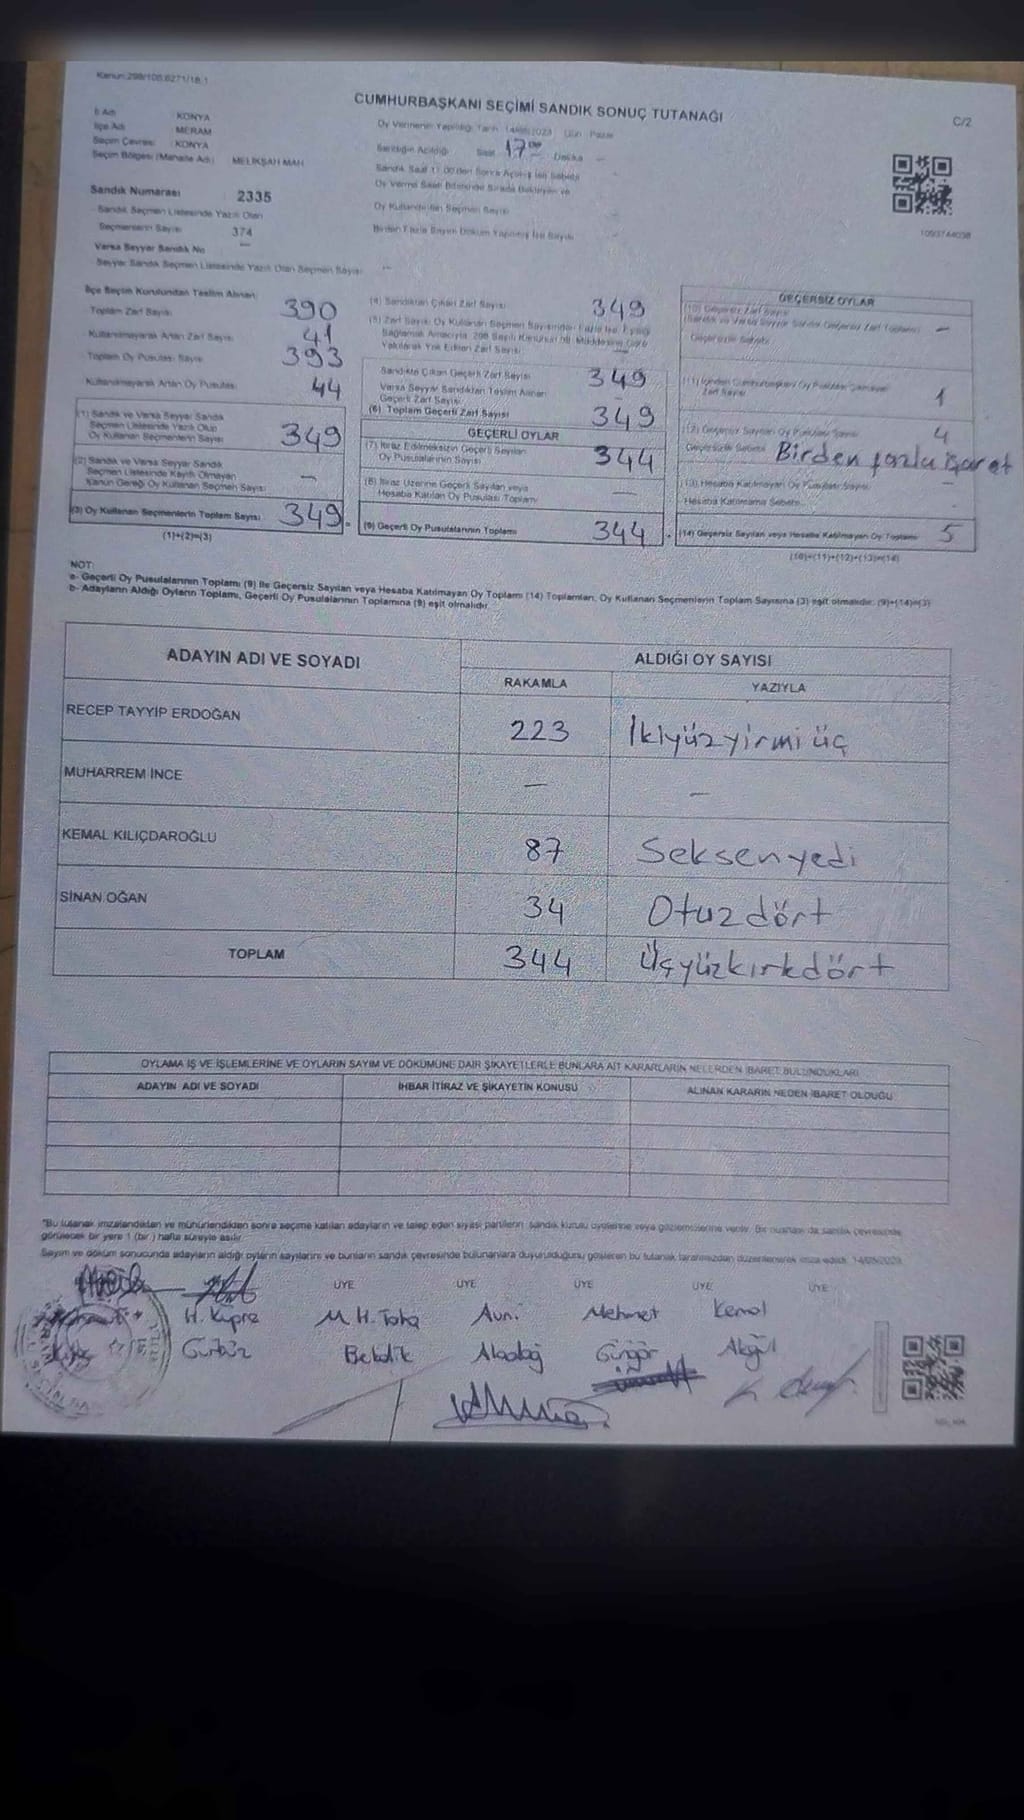 Kanun:298/105,6271/18.1
CUMHURBAŞKANI SEÇİMİ SANDIK SONUÇ TUTANAĞI
C/2
İl Adı : KONYA
İlçe Adı : MERAM
Seçim Çevresi : KONYA
Seçim Bölgesi (Mahalle Adı) : MELİKŞAH MAH
Oy Vermenin Yapıldığı Tarih 14/05/2023 Gün : Pazar
Sandığın Açıldığı Saat 17 00 Dakika —
Sandık Saat 17.00'den Sonra Açılmış İse Sebebi
Oy Verme Saati Bitiminde Sırada Bekleyen ve
Oy Kullandırılan Seçmen Sayısı
Birden Fazla Sayım Döküm Yapılmış İse Sayısı
Sandık Numarası 2335
Sandık Seçmen Listesinde Yazılı Olan
Seçmenlerin Sayısı 374
Varsa Seyyar Sandık No —
Seyyar Sandık Seçmen Listesinde Yazılı Olan Seçmen Sayısı —
İlçe Seçim Kurulundan Teslim Alınan:
Toplam Zarf Sayısı 390
Kullanılmayarak Artan Zarf Sayısı 41
Toplam Oy Pusulası Sayısı 393
Kullanılmayarak Artan Oy Pusulası 44
(1) Sandık ve Varsa Seyyar Sandık
Seçmen Listesinde Yazılı Olup
Oy Kullanan Seçmenlerin Sayısı 349
(2) Sandık ve Varsa Seyyar Sandık
Seçmen Listesinde Kayıtlı Olmayan
Kanun Gereği Oy Kullanan Seçmen Sayısı —
(3) Oy Kullanan Seçmenlerin Toplam Sayısı 349
(1)+(2)=(3)
(4) Sandıktan Çıkan Zarf Sayısı 349
(5) Zarf Sayısı Oy Kullanan Seçmen Sayısından Fazla İse, Eşitliği
Sağlamak Amacıyla 298 Sayılı Kanunun 98. Maddesine Göre
Yakılarak Yok Edilen Zarf Sayısı —
Sandıkta Çıkan Geçerli Zarf Sayısı 349
Varsa Seyyar Sandıktan Teslim Alınan
Geçerli Zarf Sayısı —
(6) Toplam Geçerli Zarf Sayısı 349
GEÇERLİ OYLAR
(7) İtiraz Edilmeksizin Geçerli Sayılan
Oy Pusulalarının Sayısı 344
(8) İtiraz Üzerine Geçerli Sayılan veya
Hesaba Katılan Oy Pusulası Toplamı —
(9) Geçerli Oy Pusulalarının Toplamı 344
GEÇERSİZ OYLAR
(10) Geçersiz Zarf Sayısı
(Sandık ve Varsa Seyyar Sandık Geçersiz Zarf Toplamı) —
Geçersizlik Sebebi
(11) İçinden Cumhurbaşkanı Oy Pusulası Çıkmayan
Zarf Sayısı 1
(12) Geçersiz Sayılan Oy Pusulası Sayısı 4
Geçersizlik Sebebi Birden fazla işaret
(13) Hesaba Katılmayan Oy Pusulası Sayısı —
Hesaba Katılmama Sebebi
(14) Geçersiz Sayılan veya Hesaba Katılmayan Oy Toplamı 5
(10)+(11)+(12)+(13)=(14)
NOT:
a- Geçerli Oy Pusulalarının Toplamı (9) ile Geçersiz Sayılan veya Hesaba Katılmayan Oy Toplamı (14) Toplamları, Oy Kullanan Seçmenlerin Toplam Sayısına (3) eşit olmalıdır. (9)+(14)=(3)
b- Adayların Aldığı Oyların Toplamı, Geçerli Oy Pusulalarının Toplamına (9) eşit olmalıdır.
ADAYIN ADI VE SOYADI
ALDIĞI OY SAYISI
RAKAMLA YAZIYLA
RECEP TAYYİP ERDOĞAN 223 İkiyüzyirmi üç
MUHARREM İNCE — —
KEMAL KILIÇDAROĞLU 87 Seksenyedi
SİNAN OĞAN 34 Otuzdört
TOPLAM 344 Üçyüzkırkdört
OYLAMA İŞ VE İŞLEMLERİNE VE OYLARIN SAYIM VE DÖKÜMÜNE DAİR ŞİKAYETLERLE BUNLARA AİT KARARLARIN NELERDEN İBARET BULUNDUKLARI
ADAYIN ADI VE SOYADI İHBAR İTİRAZ VE ŞİKAYETİN KONUSU ALINAN KARARIN NEDEN İBARET OLDUĞU
*Bu tutanak imzalandıktan ve mühürlendikten sonra seçime katılan adayların ve talep eden siyasi partilerin sandık kurulu üyelerine veya gözlemcilerine verilir. Bir nüshası da sandık çevresinde
görülecek bir yere 1 (bir) hafta süreyle asılır.
Sayım ve döküm sonucunda adayların aldığı oyların sayılarını ve bunların sandık çevresinde bulunanlara duyurulduğunu gösteren bu tutanak tarafımızdan düzenlenerek imza edildi. 14/05/2023
ÜYE ÜYE ÜYE ÜYE ÜYE
M. H. Taha Avni Mehmet Kemal
Güngör Akgül